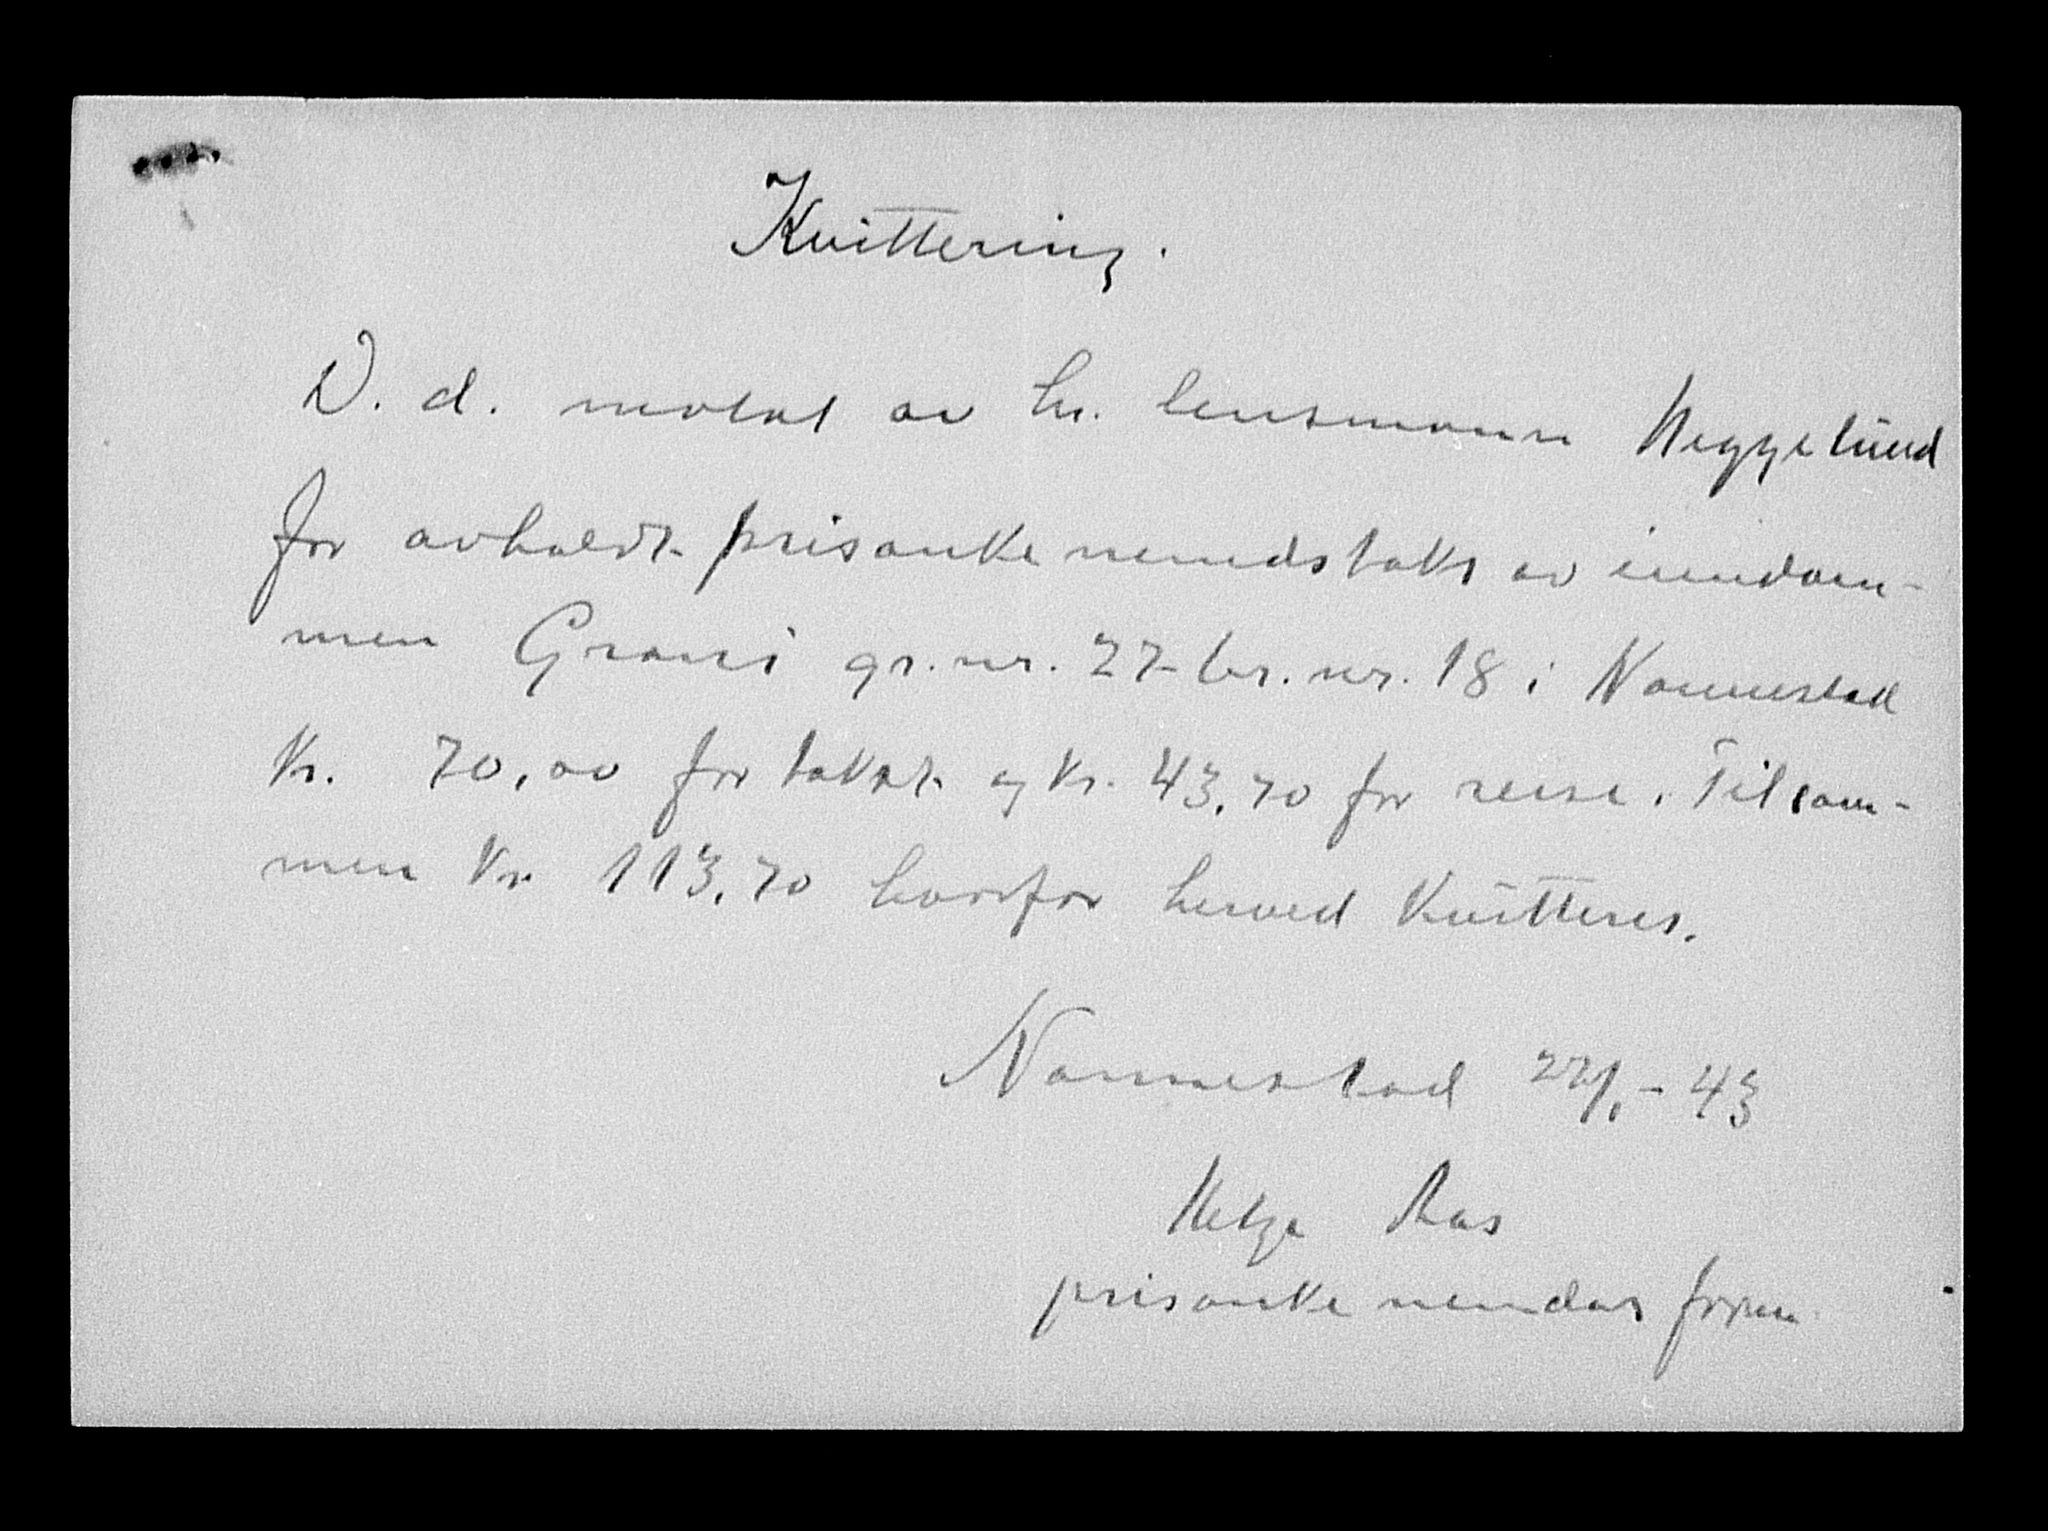 Kvittering.
D. d. motat av hr. lensmann Heggelund
for avholdt prisankenemdstakst av eiendom-
men Grani gr. nr. 27 br. nr. 18 i Nannestad
Kr. 70,00 for takst og Kr. 43,70 for reise. Tilsam-
men Kr. 113,70 hvorfor herved kvitteres.
Nannestad 22/1-43
Helge Ras
prisankenemdas form.